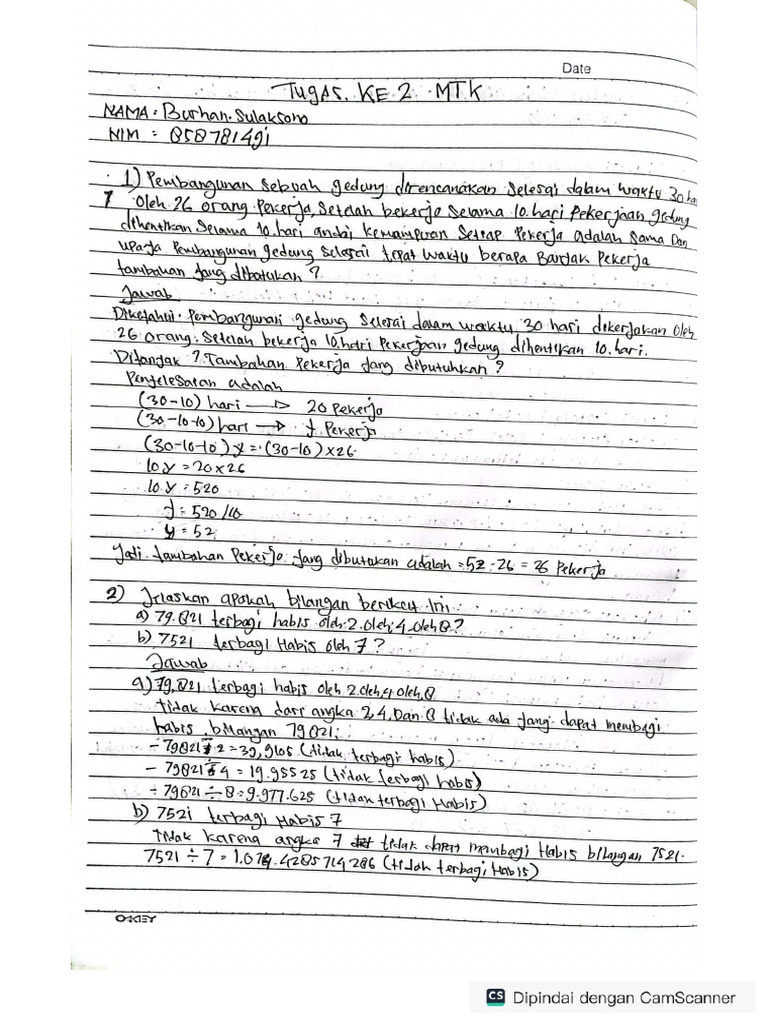 Date
Tugas. KE 2 MTK
NAMA : Burhan. Sulaksono
NIM : 858781491
1) Pembangunan Sebuah gedung direncanakan Selesai dalam waktu 30 ha
1 Oleh 26 orang Pekerja, Setelah bekerja Selama 10. hari Pekerjaan gedung
dihentikan Selama 10. hari andai kemampuan Setiap Pekerja adalah Sama Dan
upaya Pembangunan gedung Selesai tepat waktu berapa Banyak Pekerja
tambahan Yang dibutukan ?
Jawab
Diketahui. Pembangunan gedung Selesai dalam waktu 30 hari dikerjakan Oleh
26 orang. Setelah bekerja 10. hari Pekerjaan gedung dihentikan 10. hari.
Ditanyak ? Tambahan Pekerja Yang dibutuhkan ?
Penyelesaian adalah
(30-10) hari → 20 Pekerja
(30-10-10) hari → y Pekerja
(30-10-10) y = (30-10) x 26
10 y = 20 x 26
10 y = 520
y = 520/10
y = 52
Jadi tambahan Pekerja Yang dibutukan adalah = 52 - 26 = 26 Pekerja
2) Jelaskan apakah bilangan berikut Ini :
a) 79.821 terbagi habis oleh 2. Oleh 4 Oleh 8 ?
b) 7521 terbagi Habis oleh 7 ?
Jawab
a) 79.821 terbagi habis oleh 2. Oleh, 4 oleh, 8
tidak karena dari angka 2, 4, Dan 8 tidak ada Yang dapat membagi
habis bilangan 79821;
- 79821 ÷ 2 = 39,9105 (tidak terbagi habis)
- 79821 ÷ 4 = 19.95525 (tidak terbagi habis)
÷ 79821 ÷ 8 = 9.977.625 (tidak terbagi Habis)
b) 7521 terbagi Habis 7
tidak karena angka 7 tidak dapat membagi Habis bilangan 7521.
7521 ÷ 7 = 1.074.4285714286 (tidak terbagi Habis)
O-KEY
CS Dipindai dengan CamScanner